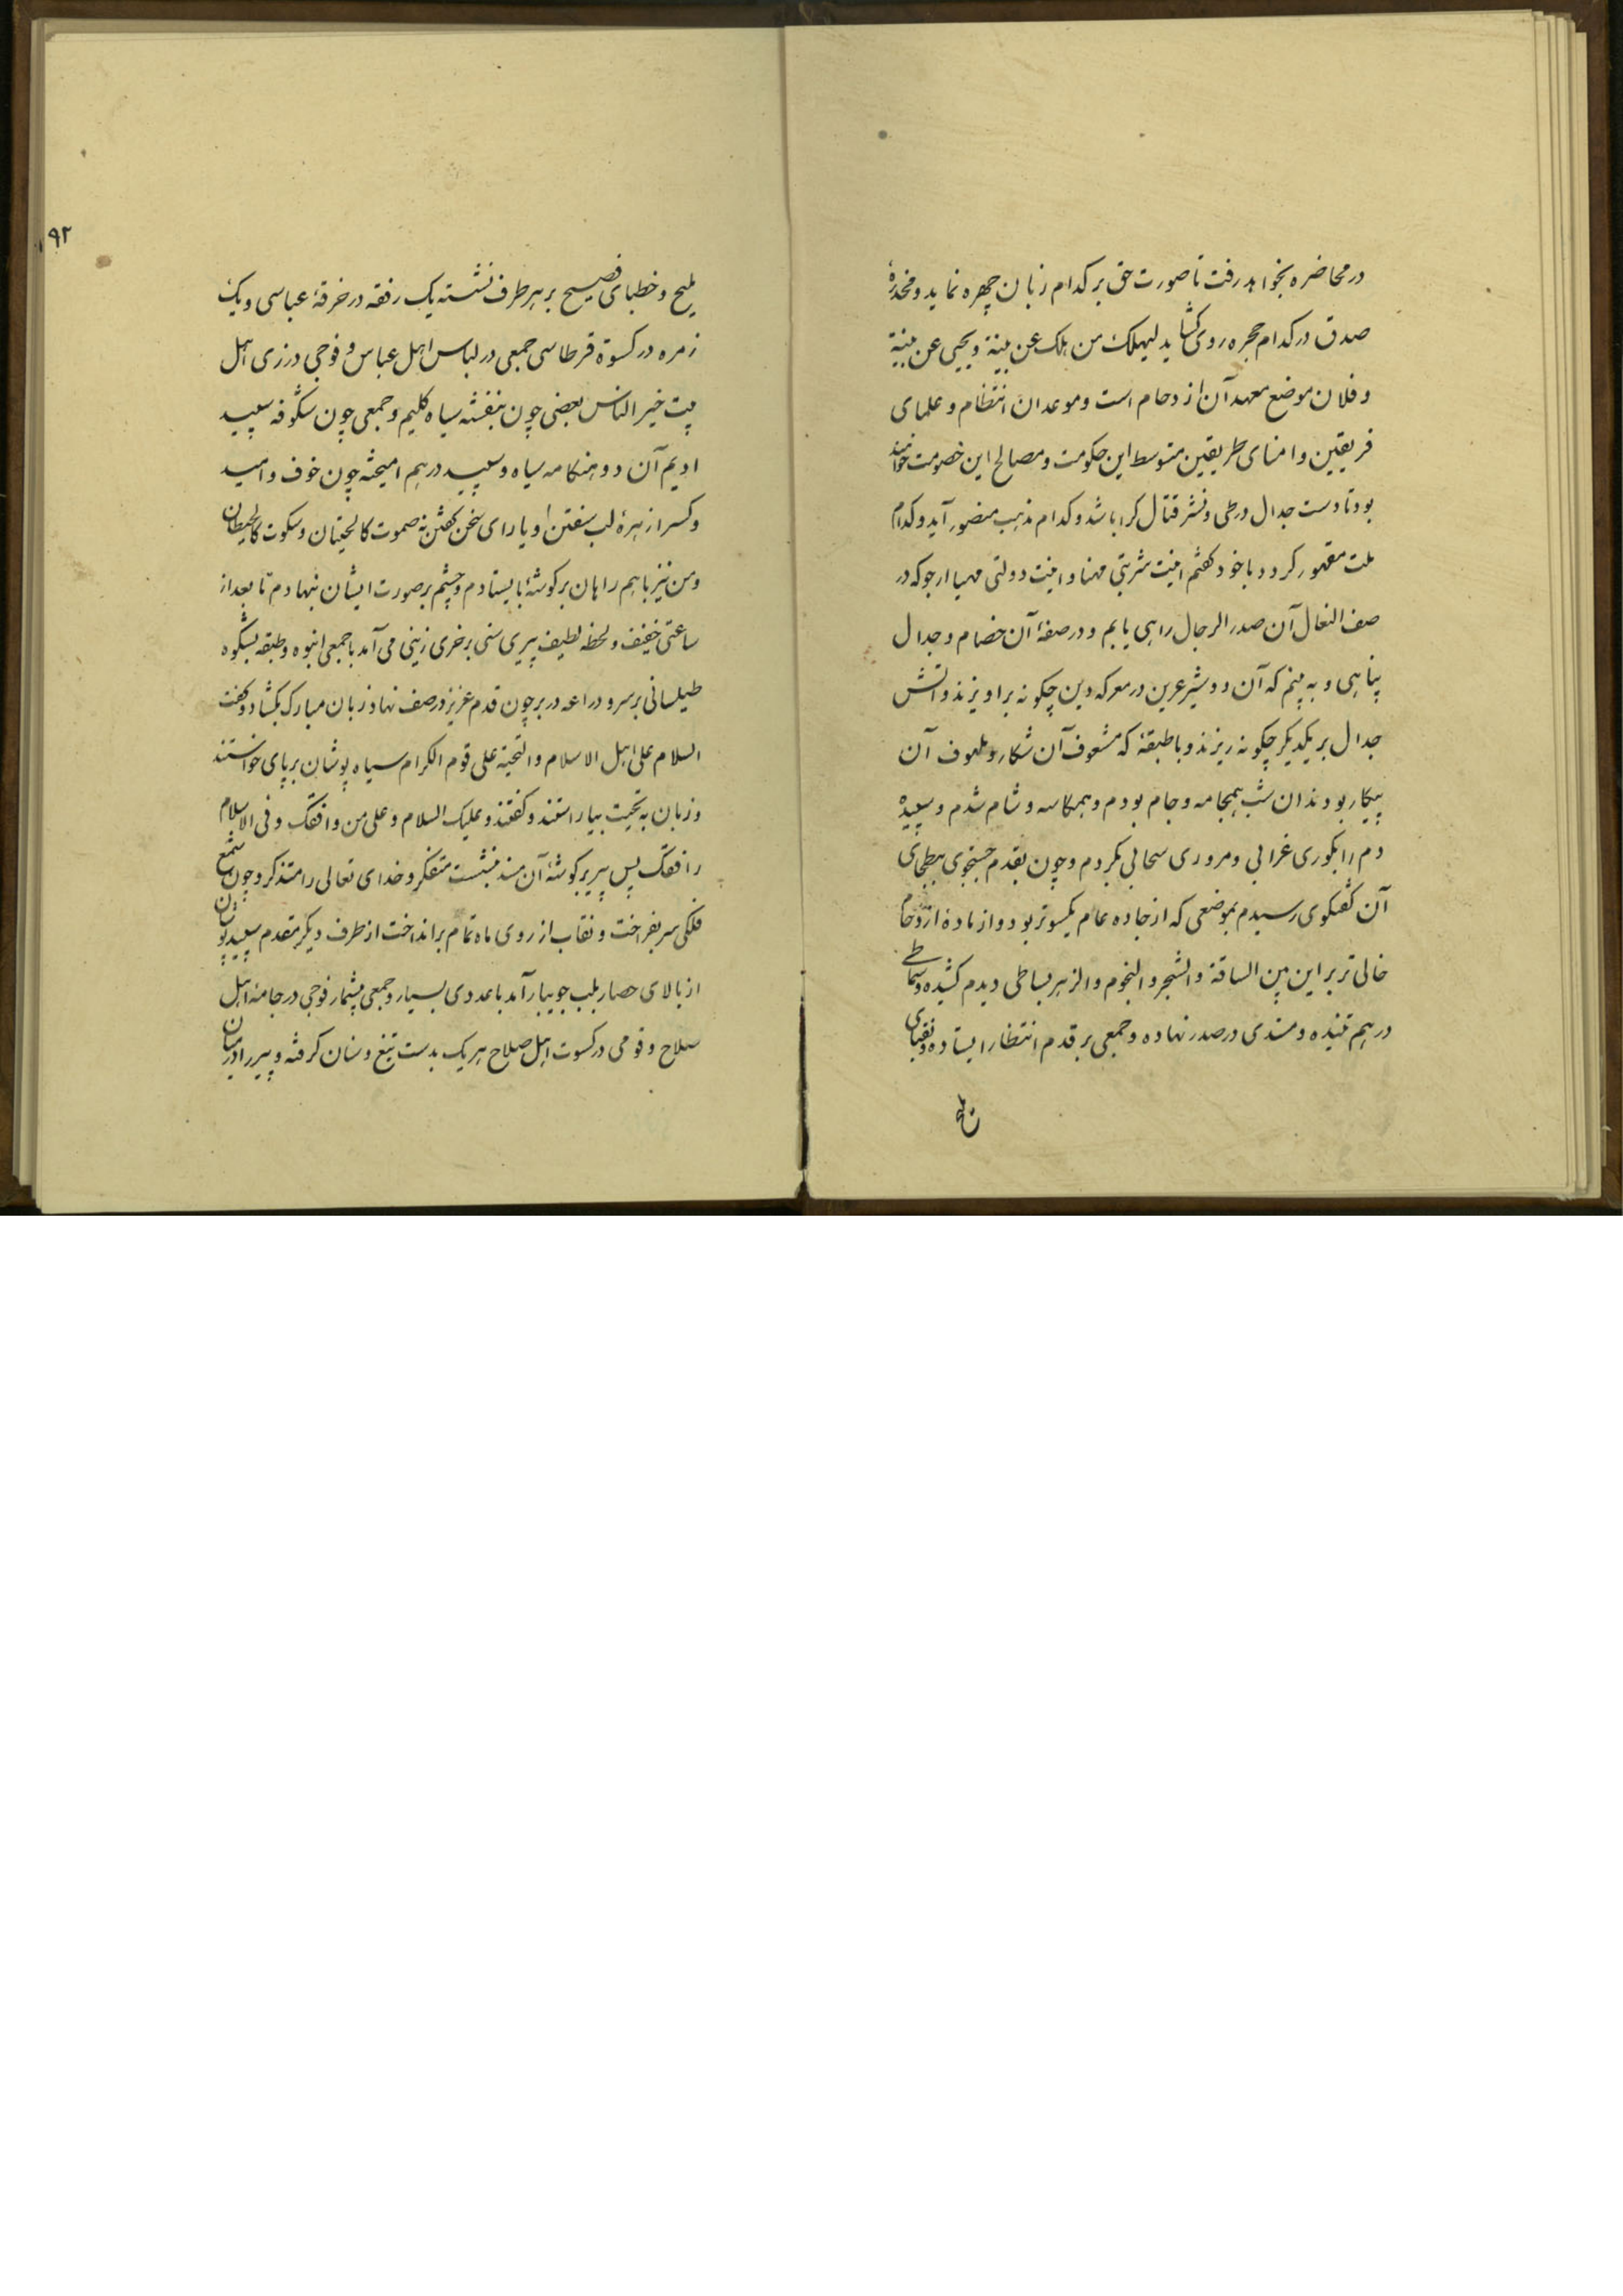 در محاضره بخواهد رفت تا صورت حق بر کدام زبان چهره نماید و مخدرهٔ
صدق در کدام حجره روی کشاید لیهلک من هلک عن بینة و یحیی عن بینة
و فلان موضع معهد آن ازدحام است و موعد ان انتظام و علمای
فریقین و امنای طریقین متوسط این حکومت و مصالح این خصومت خواهند
بود تا دست جدال در طی و نشر قتال کرا باشد و کدام مذهب منصور آید و کدام
ملت مقهور کردد با خود کفتم اینت شربتی مهنا و اینت دولتی مهیا ارجو که در
صف النعال آن صدر الرجال راهی یابم و در صفهٔ آن خصام و جدال
پناهی و به بینم که آن دو شیر عرین در معرکه دین چکونه براویزند و اتش
جدال بر یکدیکر چکونه ریزند و با طبقهٔ که مشعوف آن شکار و ملهوف آن
پیکار بودند ان شب همجامه و جام بودم و همکاسه و شام شدم و سپیده
دم را بکوری غرابی و مروری سحابی بکردم و چون بقدم جستجوی ببطحای
آن کفتکوی رسیدم بموضعی که از جاده عام یکسوتر بود و از مادهٔ ازدحام
خالی تر براین بین الساقة و الشجر و النجوم و الزهر بساطی دیدم کشیده و سماطی
در هم تنیده و مسندی در صدر نهاده و جمعی بر قدم انتظار ایستاده و نقبای
ملیح و خطبای فصیح بر هر طرف نشسته یک رفقه در خرقهٔ عباسی و یک
زمره در کسوة قرطاسی جمعی در لباس اهل عباس و فوجی در زی اهل
بیت خیر الناس بعضی چون بنفشه سیاه کلیم و جمعی چون شکوفه سپید
ادیم آن دو هنکامه سیاه و سپید در هم امیخته چون خوف و امید
و کسرا زهرهٔ لب سفتن و یارای سخن کفتن نه صموت کالحیتان و سکوت کالحیطان
و من نیز با همراهان بر کوشهٔ بایستادم و چشم بر صورت ایشان نهادم تا بعد از
ساعتی خفیف و لحظه لطیف پیری سنی بر خری زینی می آمد با جمعی انبوه و طبقه بشکوه
طیلسانی بر سر و دراعه در بر چون قدم عزیز در صف نهاد زبان مبارک بکشاد و کفت
السلام علی اهل الاسلام و التحیة علی قوم الکرام سیاه پوشان بر پای خواستند
و زبان به تحیت بیاراستند و کفتند و علیک السلام و علی من وافقک و فی الاسلام
رافقک پس پیر بر کوشهٔ آن مسند بنشست متفکر و خدای تعالی را متذکر و چون شمع
فلکی سر بفراخت و نقاب از روی ماه تمام برانداخت از طرف دیکر مقدم سپید پوشان
از بالای حصار بلب جویبار آمد با عددی بسیار و جمعی بیشمار فوجی در جامهٔ اهل
سلاح و قومی در کسوت اهل صلاح هر یک بدست تیغ و سنان کرفته و پیر را در میان
۱۹۲